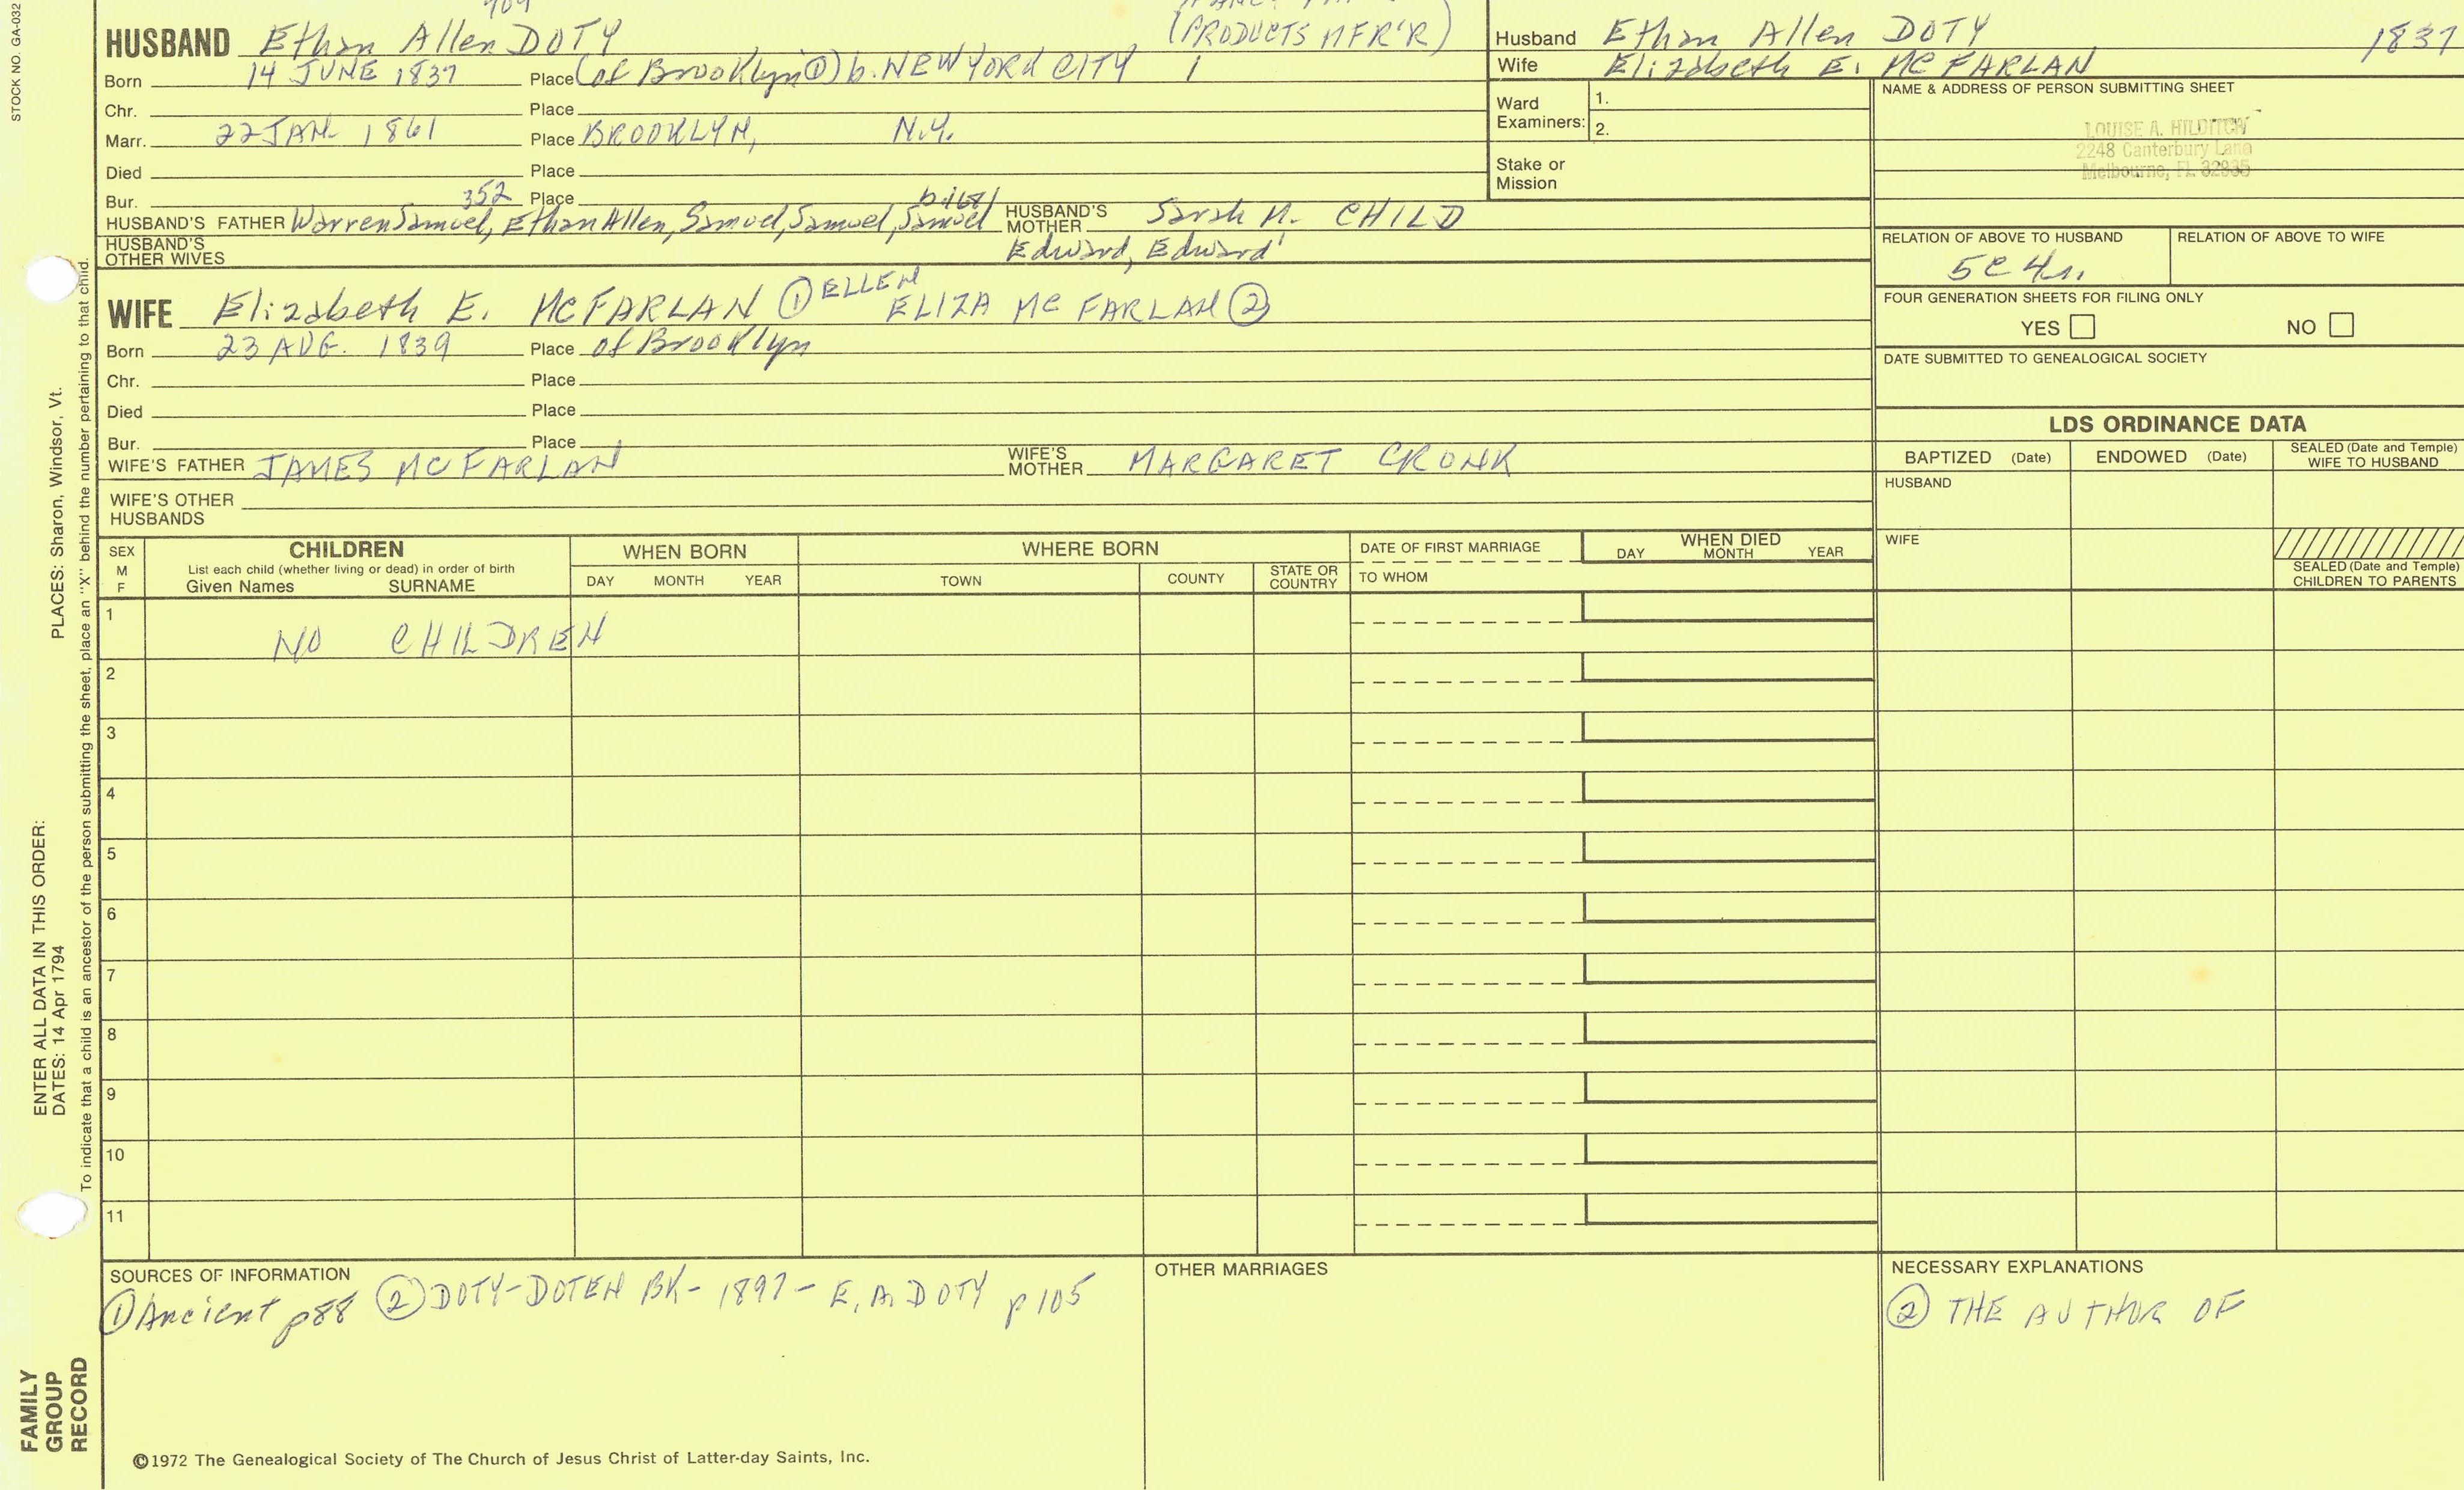 STOCK NO. GA-032
PLACES: Sharon, Windsor, Vt.
ENTER ALL DATA IN THIS ORDER:
DATES: 14 Apr 1794
To indicate that a child is an ancestor of the person submitting the sheet, place an "X" behind the number pertaining to that child.
FAMILY
GROUP
RECORD
(PRODUCTS MFR'R)
HUSBAND Ethan Allen DOTY
Born 14 JUNE 1837 Place (of Brooklyn ①) b. NEW YORK CITY
Chr. Place
Marr. 22 JAN 1861 Place BROOKLYN, N.Y.
Died Place
Bur. 352 Place
HUSBAND'S FATHER Warren Samuel, Ethan Allen, Samuel, Samuel, Samuel
HUSBAND'S MOTHER Sarah M. CHILD
Edward, Edward'
HUSBAND'S OTHER WIVES
WIFE Elizabeth E. McFARLAN ① ELLEN ELIZA McFARLAN ②
Born 23 AUG. 1839 Place of Brooklyn
Chr. Place
Died Place
Bur. Place
WIFE'S FATHER JAMES McFARLAN WIFE'S MOTHER MARGARET CRONK
WIFE'S OTHER HUSBANDS
Husband Ethan Allen DOTY 1837
Wife Elizabeth E. McFARLAN
Ward Examiners: 1.
2.
Stake or Mission
NAME & ADDRESS OF PERSON SUBMITTING SHEET
LOUISE A. HILDITCH
2248 Canterbury Lane
Melbourne, FL 32935
RELATION OF ABOVE TO HUSBAND RELATION OF ABOVE TO WIFE
5C4r.
FOUR GENERATION SHEETS FOR FILING ONLY
YES NO
DATE SUBMITTED TO GENEALOGICAL SOCIETY
LDS ORDINANCE DATA
BAPTIZED (Date) ENDOWED (Date) SEALED (Date and Temple) WIFE TO HUSBAND
HUSBAND
WIFE
SEALED (Date and Temple) CHILDREN TO PARENTS
SEX M F
CHILDREN
List each child (whether living or dead) in order of birth
Given Names SURNAME
WHEN BORN
DAY MONTH YEAR
WHERE BORN
TOWN COUNTY STATE OR COUNTRY
DATE OF FIRST MARRIAGE
TO WHOM
WHEN DIED
DAY MONTH YEAR
1 NO CHILDREN
2
3
4
5
6
7
8
9
10
11
SOURCES OF INFORMATION
① Ancient p88 ② DOTY-DOTEN BK- 1897- E.A. DOTY p 105
OTHER MARRIAGES
NECESSARY EXPLANATIONS
② THE AUTHOR OF
©1972 The Genealogical Society of The Church of Jesus Christ of Latter-day Saints, Inc.